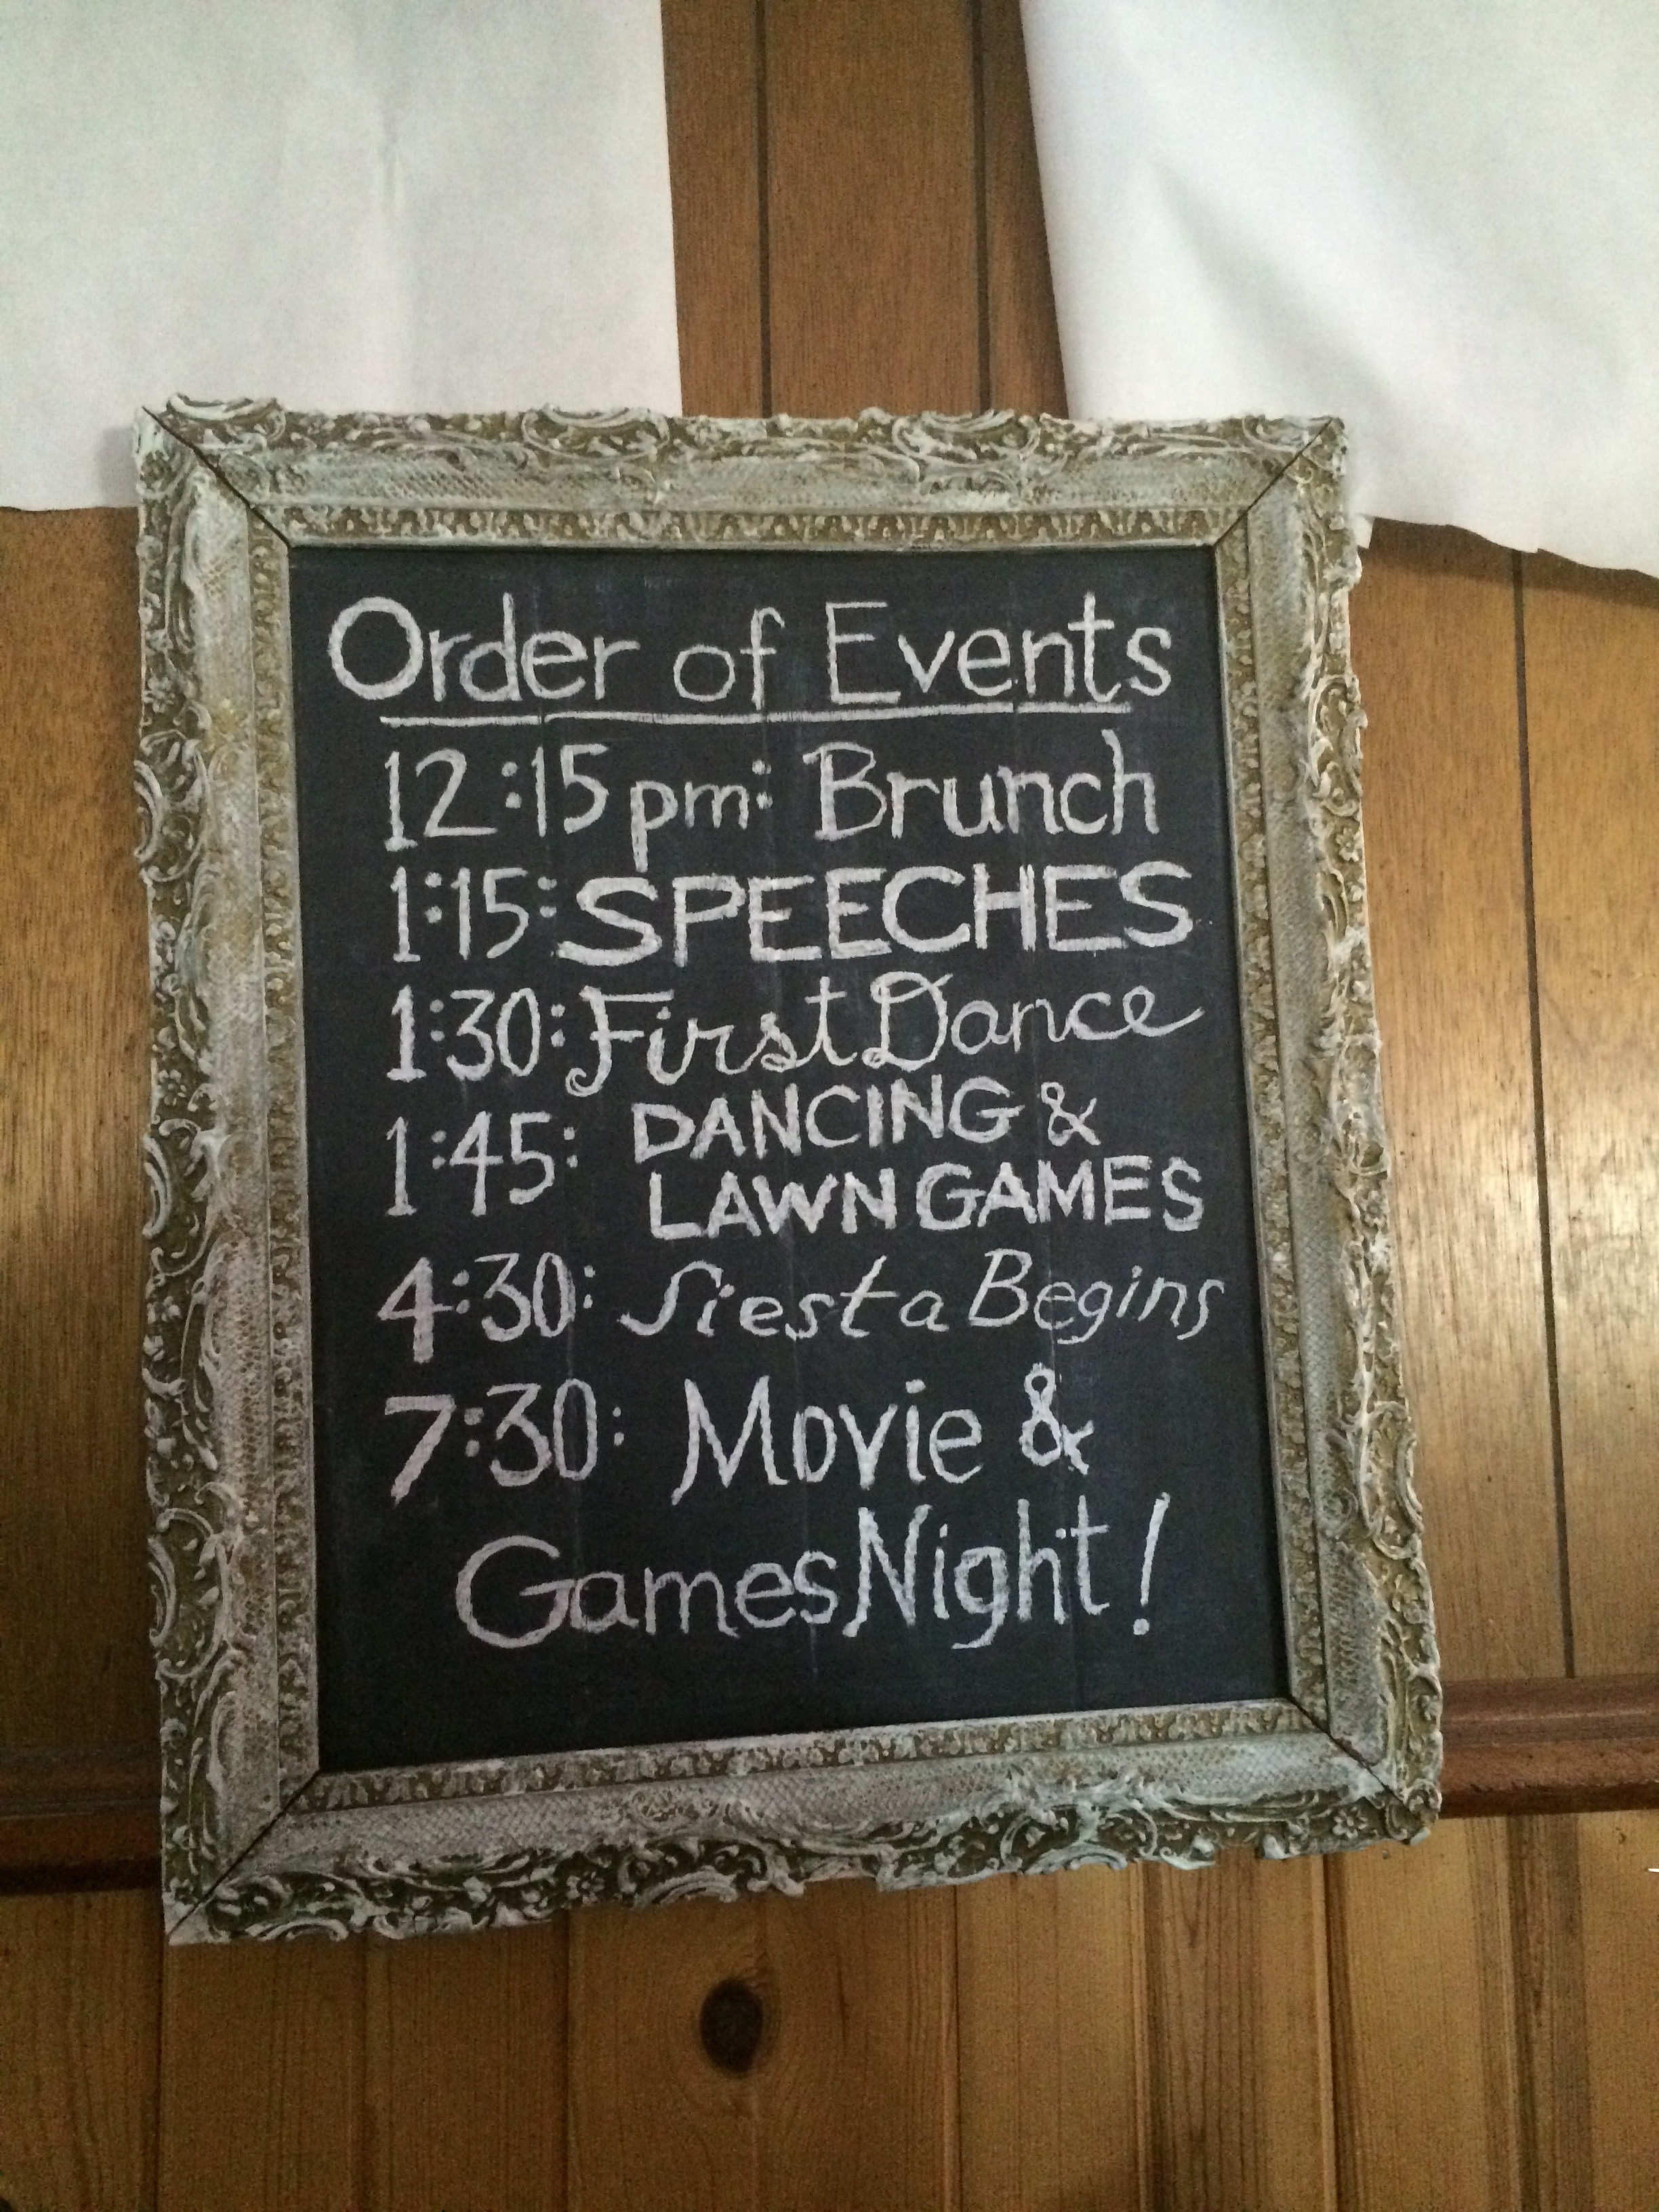 Order of Events
12:15 pm: Brunch
1:15: SPEECHES
1:30: First Dance
1:45: DANCING &
LAWN GAMES
4:30: Siesta Begins
7:30: Movie &
Games Night!